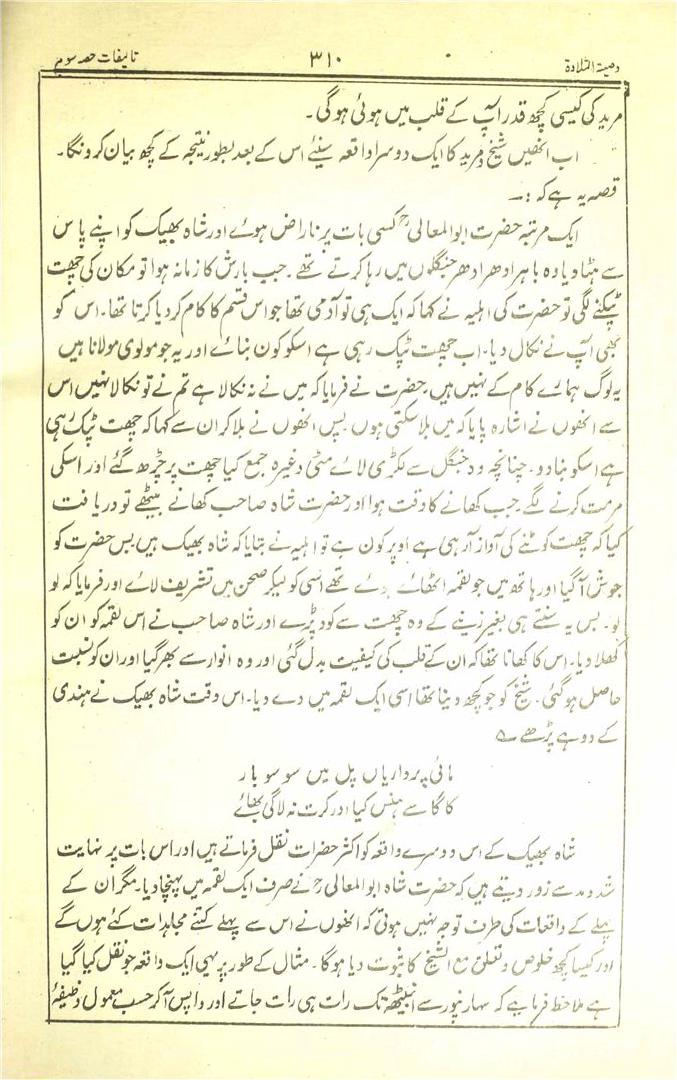 وصیۃ التلاوۃ ۳۱۰ تالیفات حصہ سوم
مرید کی کیسی کچھ قدر آپ کے قلب میں ہوئی ہوگی۔
اب انھیں شیخ و مرید کا ایک دوسرا واقعہ سنیئے اس کے بعد بطور نتیجہ کے کچھ بیان کرونگا۔
قصہ یہ ہے کہ :۔
ایک مرتبہ حضرت ابوالمعالیؒ کسی بات پر ناراض ہوئے اور شاہ بھیک کو اپنے پاس
سے ہٹا دیا وہ باہر ادھر ادھر جنگلوں میں رہا کرتے تھے۔ جب بارش کا زمانہ ہوا تو مکان کی چھت
ٹپکنے لگی تو حضرت کی اہلیہ نے کہا کہ ایک ہی تو آدمی تھا جو اس قسم کا کام کر دیا کرتا تھا۔ اس کو
بھی آپ نے نکال دیا۔ اب چھت ٹپک رہی ہے اسکو کون بنائے اور یہ جو مولوی مولانا ہیں
یہ لوگ ہمارے کام کے نہیں ہیں۔ حضرت نے فرمایا کہ میں نے نہ نکالا ہے تم نے تو نکالا نہیں اس
سے انھوں نے اشارہ پایا کہ میں بلا سکتی ہوں بس انھوں نے بلا کر ان سے کہا کہ چھت ٹپک رہی
ہے اسکو بنا دو۔ چنانچہ وہ جنگل سے لکڑی لائے مٹی وغیرہ جمع کیا چھت پر چڑھ گئے اور اسکی
مرمت کرنے لگے۔ جب کھانے کا وقت ہوا اور حضرت شاہ صاحب کھانے بیٹھے تو دریافت
کیا کہ چھت کوٹنے کی آواز آرہی ہے اوپر کون ہے تو اہلیہ نے بتایا کہ شاہ بھیک ہیں بس حضرت کو
جوش آگیا اور ہاتھ میں جو لقمہ اٹھائے ہوئے تھے اسی کو لیکر صحن میں تشریف لائے اور فرمایا کہ لو
لو۔ بس یہ سنتے ہی بغیر زینے کے وہ چھت سے کود پڑے اور شاہ صاحب نے اس لقمہ کو ان کو
کھلا دیا۔ اس کا کھانا تھا کہ ان کے قلب کی کیفیت بدل گئی اور وہ انوار سے بھر گیا اور ان کو نسبت
حاصل ہوگئی۔ شیخ کو جو کچھ دینا تھا اسی ایک لقمہ میں دے دیا۔ اس وقت شاہ بھیک نے ہندی
کے دوہے پڑھے ؎
مائی پر واریاں پل میں سو سو بار
کاگا سے ہنس کیا اور کرت نہ لاگی بھائے
شاہ بھیک کے اس دوسرے واقعہ کو اکثر حضرات نقل فرماتے ہیں اور اس بات پر نہایت
شد و مد سے زور دیتے ہیں کہ حضرت شاہ ابوالمعالیؒ نے صرف ایک لقمہ میں پہنچا دیا۔ مگر ان کے
پہلے کے واقعات کی طرف توجہ نہیں ہوتی کہ انھوں نے اس سے پہلے کتنے مجاہدات کئے ہوں گے
اور کیسا کچھ خلوص و تعلق مع الشیخ کا ثبوت دیا ہوگا۔ مثال کے طور پر یہی ایک واقعہ جو نقل کیا گیا
ہے ملاحظہ فرمایئے کہ سہارنپور سے انبیٹھہ تک رات ہی رات جاتے اور واپس آکر حسب معمول وظیفۂ